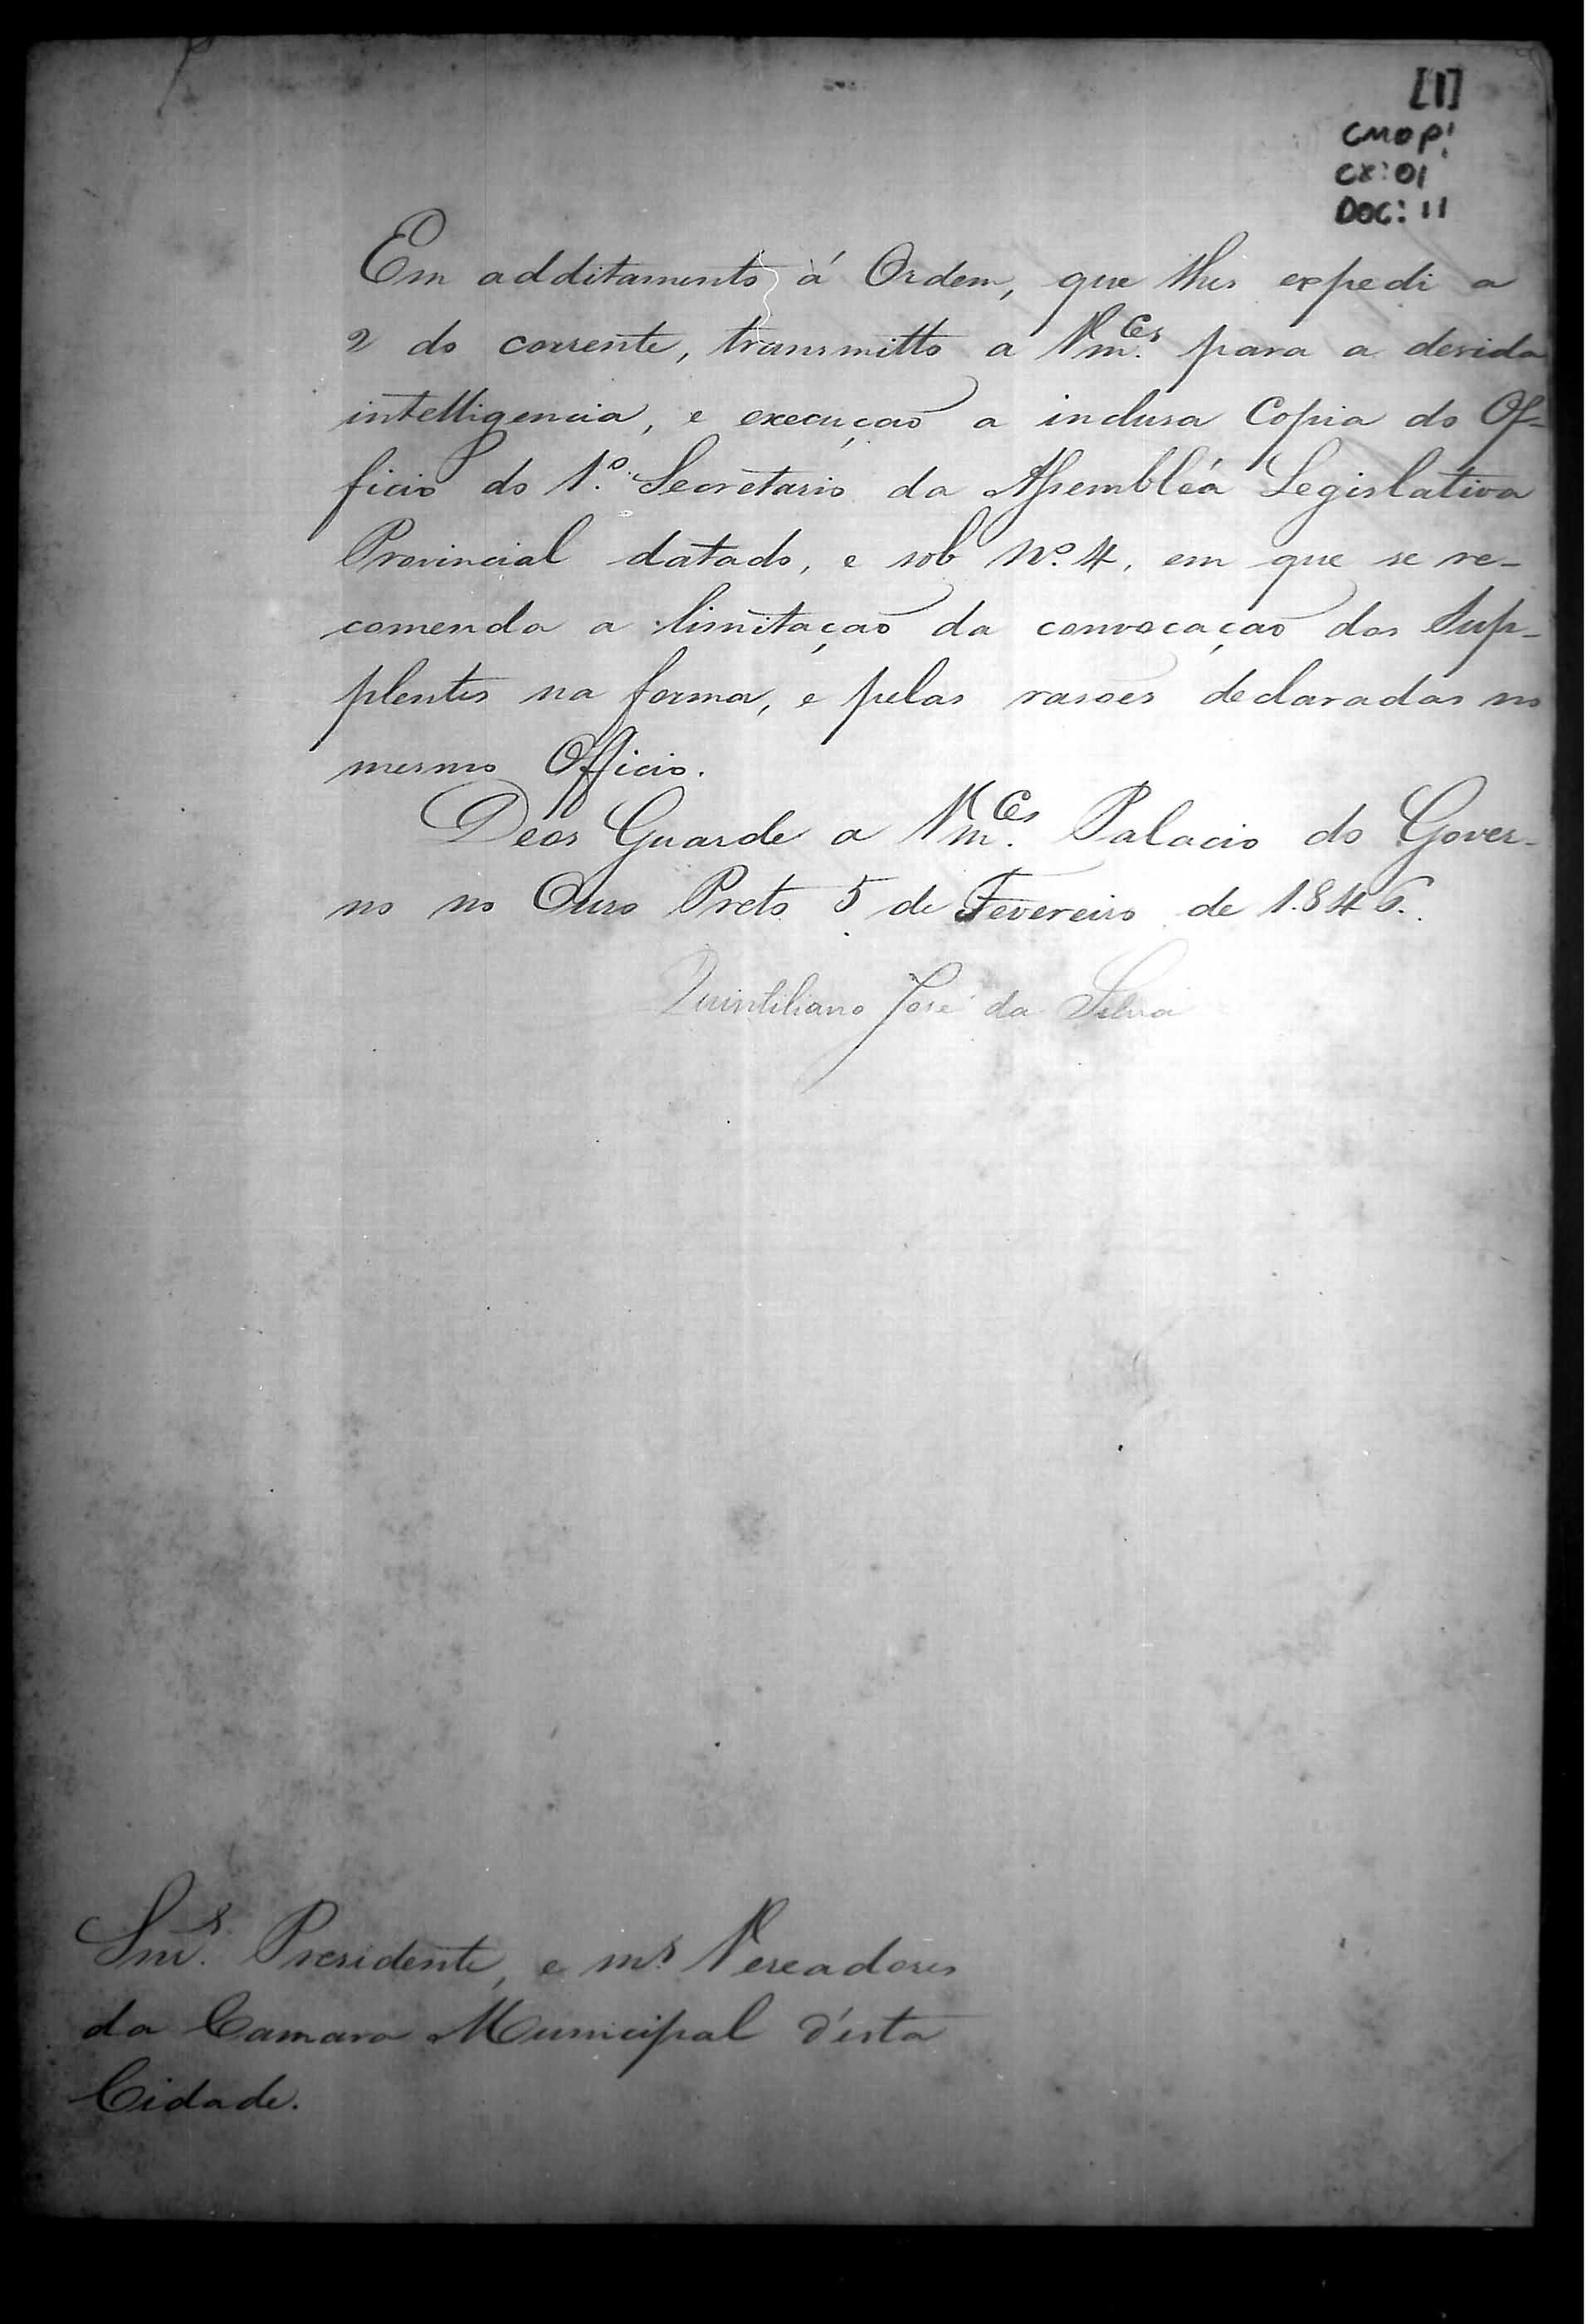 [1]
CMOP!
CX:01
DOC: 11
Em additamento á Ordem, que lhes expedi a
2 do corrente, transmitto a Vm.ces para a devida
intelligencia, e execução a inclusa Copia do Of-
ficio do 1.º Secretario da Assembléa Legislativa
Provincial datado, e sob Nº. 4, em que se re-
comenda a limitação da convocação dos Sup-
plentes na forma, e pelas rasões declaradas no
mesmo Officio.
Deos Guarde a Vm.ces Palacio do Gover-
no no Ouro Preto 5 de Fevereiro de 1.846.
Quintiliano José da Silva
Snrs. Presidente, e ms. Vereadores
da Camara Municipal d'esta
Cidade.